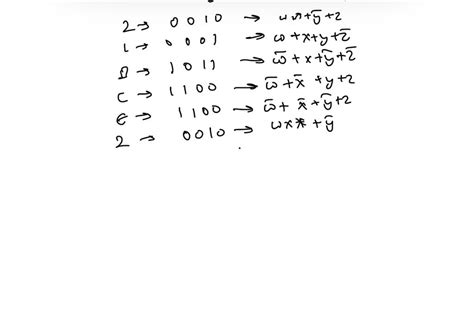 2 → 0010 → w x + y̅ + z
1 → 0001 → w + x + y + z̅
D → 1011 → w̅ + x + y̅ + z̅
C → 1100 → w̅ + x̅ + y + z
E → 1100 → w̅ + x̅ + y̅ + z
2 → 0010 → w x x + y̅